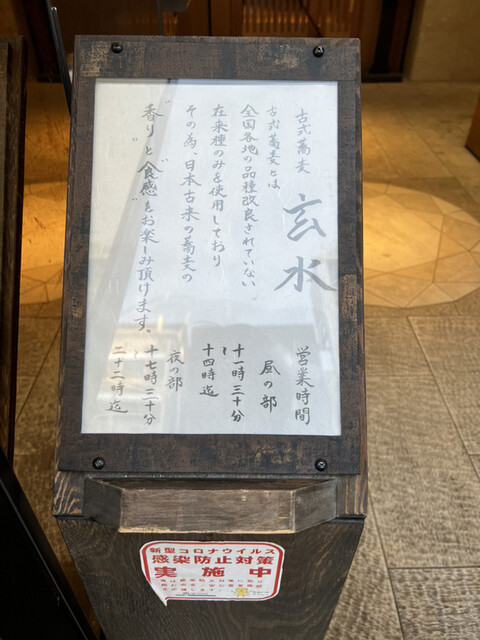 古式蕎麦
玄水
古式蕎麦とは
全国各地の品種改良されていない
在来種のみを使用しており
その為、日本古来の蕎麦の
"香り"と"食感"をお楽しみ頂けます。
営業時間
昼の部
十一時三十分
～
十四時迄
夜の部
十七時三十分
～
二十二時迄
新型コロナウイルス
感染防止対策
実施中